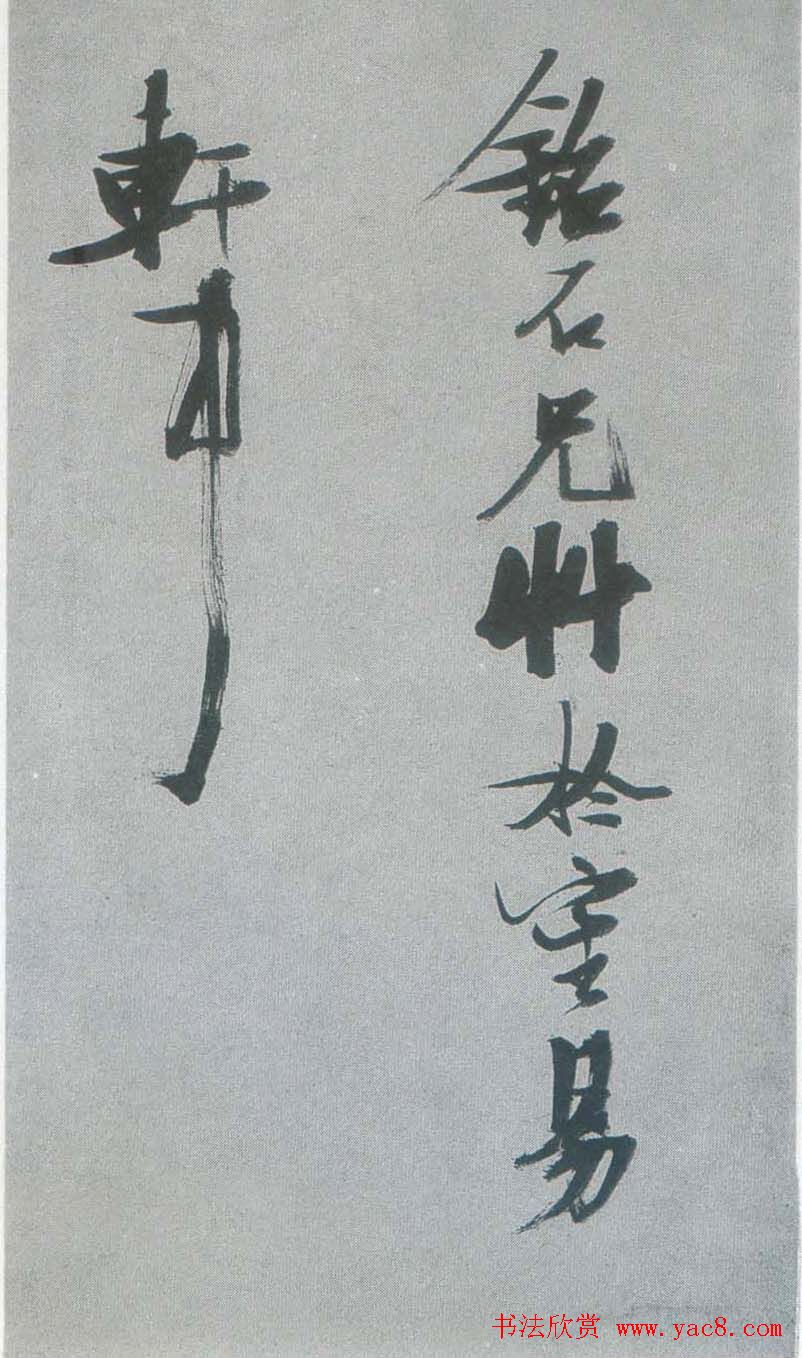 石兄艸於室易
軒
书法欣赏 www.yac8.com